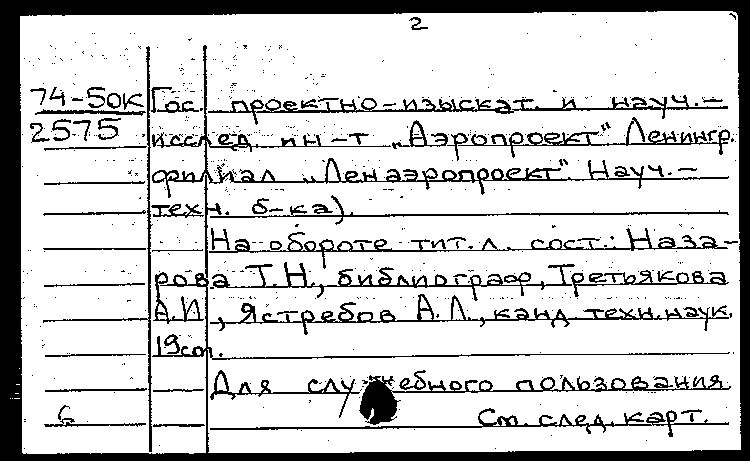 2
74-5ок Гос. проектно-изыскат. и науч.-
2575 исслед. ин-т „Аэропроект" Ленингр.
филиал „Ленаэропроект". Науч.-
техн. б-ка).
На обороте тит. л. сост.: Наза-
рова Т.Н., библиограф, Третьякова
А.И., Ястребов А.Л., канд. техн. наук.
19см.
Для служебного пользования
6 См. след. карт.